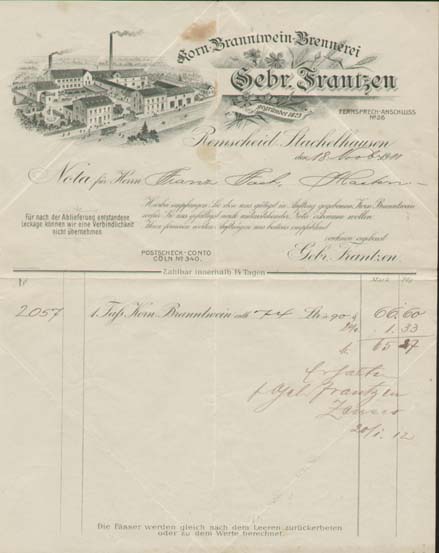 Korn-Branntwein-Brennerei
Gebr. Frantzen
gegründet 1825
FERNSPRECH-ANSCHLUSS
No 28
Remscheid-Stachelhausen
den 18. 1911
Nota für Herrn Franz
Hierbei empfangen Sie den uns gütigst in Auftrag gegebenen Korn-Branntwein
wofür Sie uns gefälligst nach untenstehender Nota erkennen wollen.
Ihren ferneren werthen Aufträgen uns bestens empfehlend
zeichnen ergebenst
Gebr. Frantzen.
Für nach der Ablieferung entstandene
Leckage können wir eine Verbindlichkeit
nicht übernehmen.
POSTSCHECK-CONTO
CÖLN No 340.
Zahlbar innerhalb 14 Tagen
No Mark Pfg
2057 1 Fass Korn-Branntwein 74 Ltr a 90 66.60
2% 1.33
65 27
Erhalten
Gebr. Frantzen
20/1. 12
Die Fässer werden gleich nach dem Leeren zurückerbeten
oder zu dem Werte berechnet.